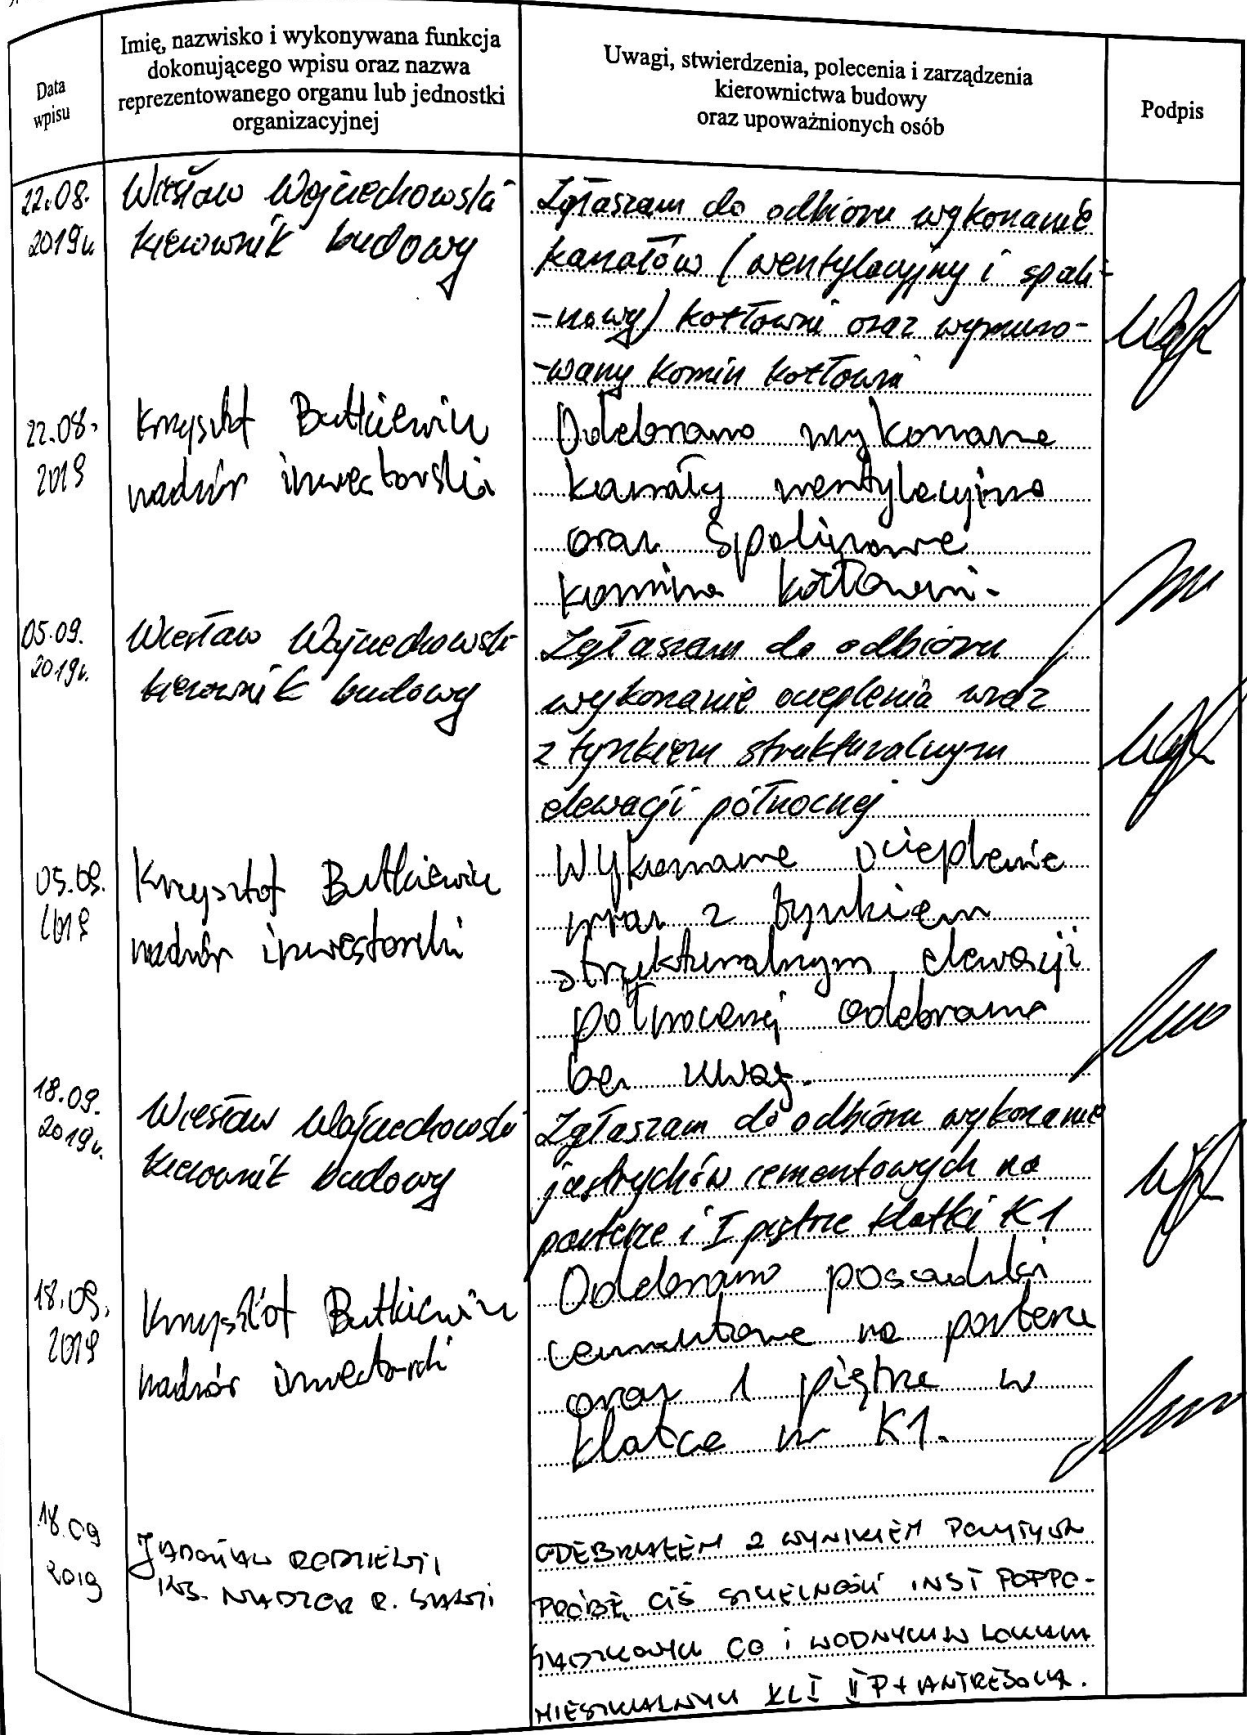 Data
wpisu
Imię, nazwisko i wykonywana funkcja
dokonującego wpisu oraz nazwa
reprezentowanego organu lub jednostki
organizacyjnej
Uwagi, stwierdzenia, polecenia i zarządzenia
kierownictwa budowy
oraz upoważnionych osób
Podpis
22.08.
2019r.
Wiesław Wojciechowski
kierownik budowy
Zgłaszam do odbioru wykonanie
kanałów (wentylacyjny i spali-
-nowy) kotłowni oraz wymuro-
-wany komin kotłowni
22.08.
2019
Krzysztof Butkiewicz
nadzór inwestorski
Odebrano wykonane
kanały wentylacyjne
oraz spalinowe
komina kotłowni.
05.09.
2019r.
Wiesław Wojciechowski
kierownik budowy
Zgłaszam do odbioru
wykonanie ocieplenia wraz
z tynkiem strukturalnym
elewacji północnej
05.09.
2019
Krzysztof Butkiewicz
nadzór inwestorski
Wykonane ocieplenie
wraz z tynkiem
strukturalnym elewacji
północnej odebrano
bez uwag.
18.09.
2019r.
Wiesław Wojciechowski
kierownik budowy
Zgłaszam do odbioru wykonanie
jastrychów cementowych na
parterze i I piętrze klatki K1
18.09.
2019
Krzysztof Butkiewicz
nadzór inwestorski
Odebrano posadzki
cementowe na parterze
oraz 1 piętrze w
klatce nr K1.
18.09
2019
INS. NADZOR R. SANIT
ODEBRAŁEM Z WYNIKIEM POZYTYWN
PRÓBĘ CIŚ SZCZELNOŚCI INST PODPO-
SADZKOWYCH CO i WODNYCH W LOKALACH
MIESZKALNYCH KL I II P + ANTRESOLA.